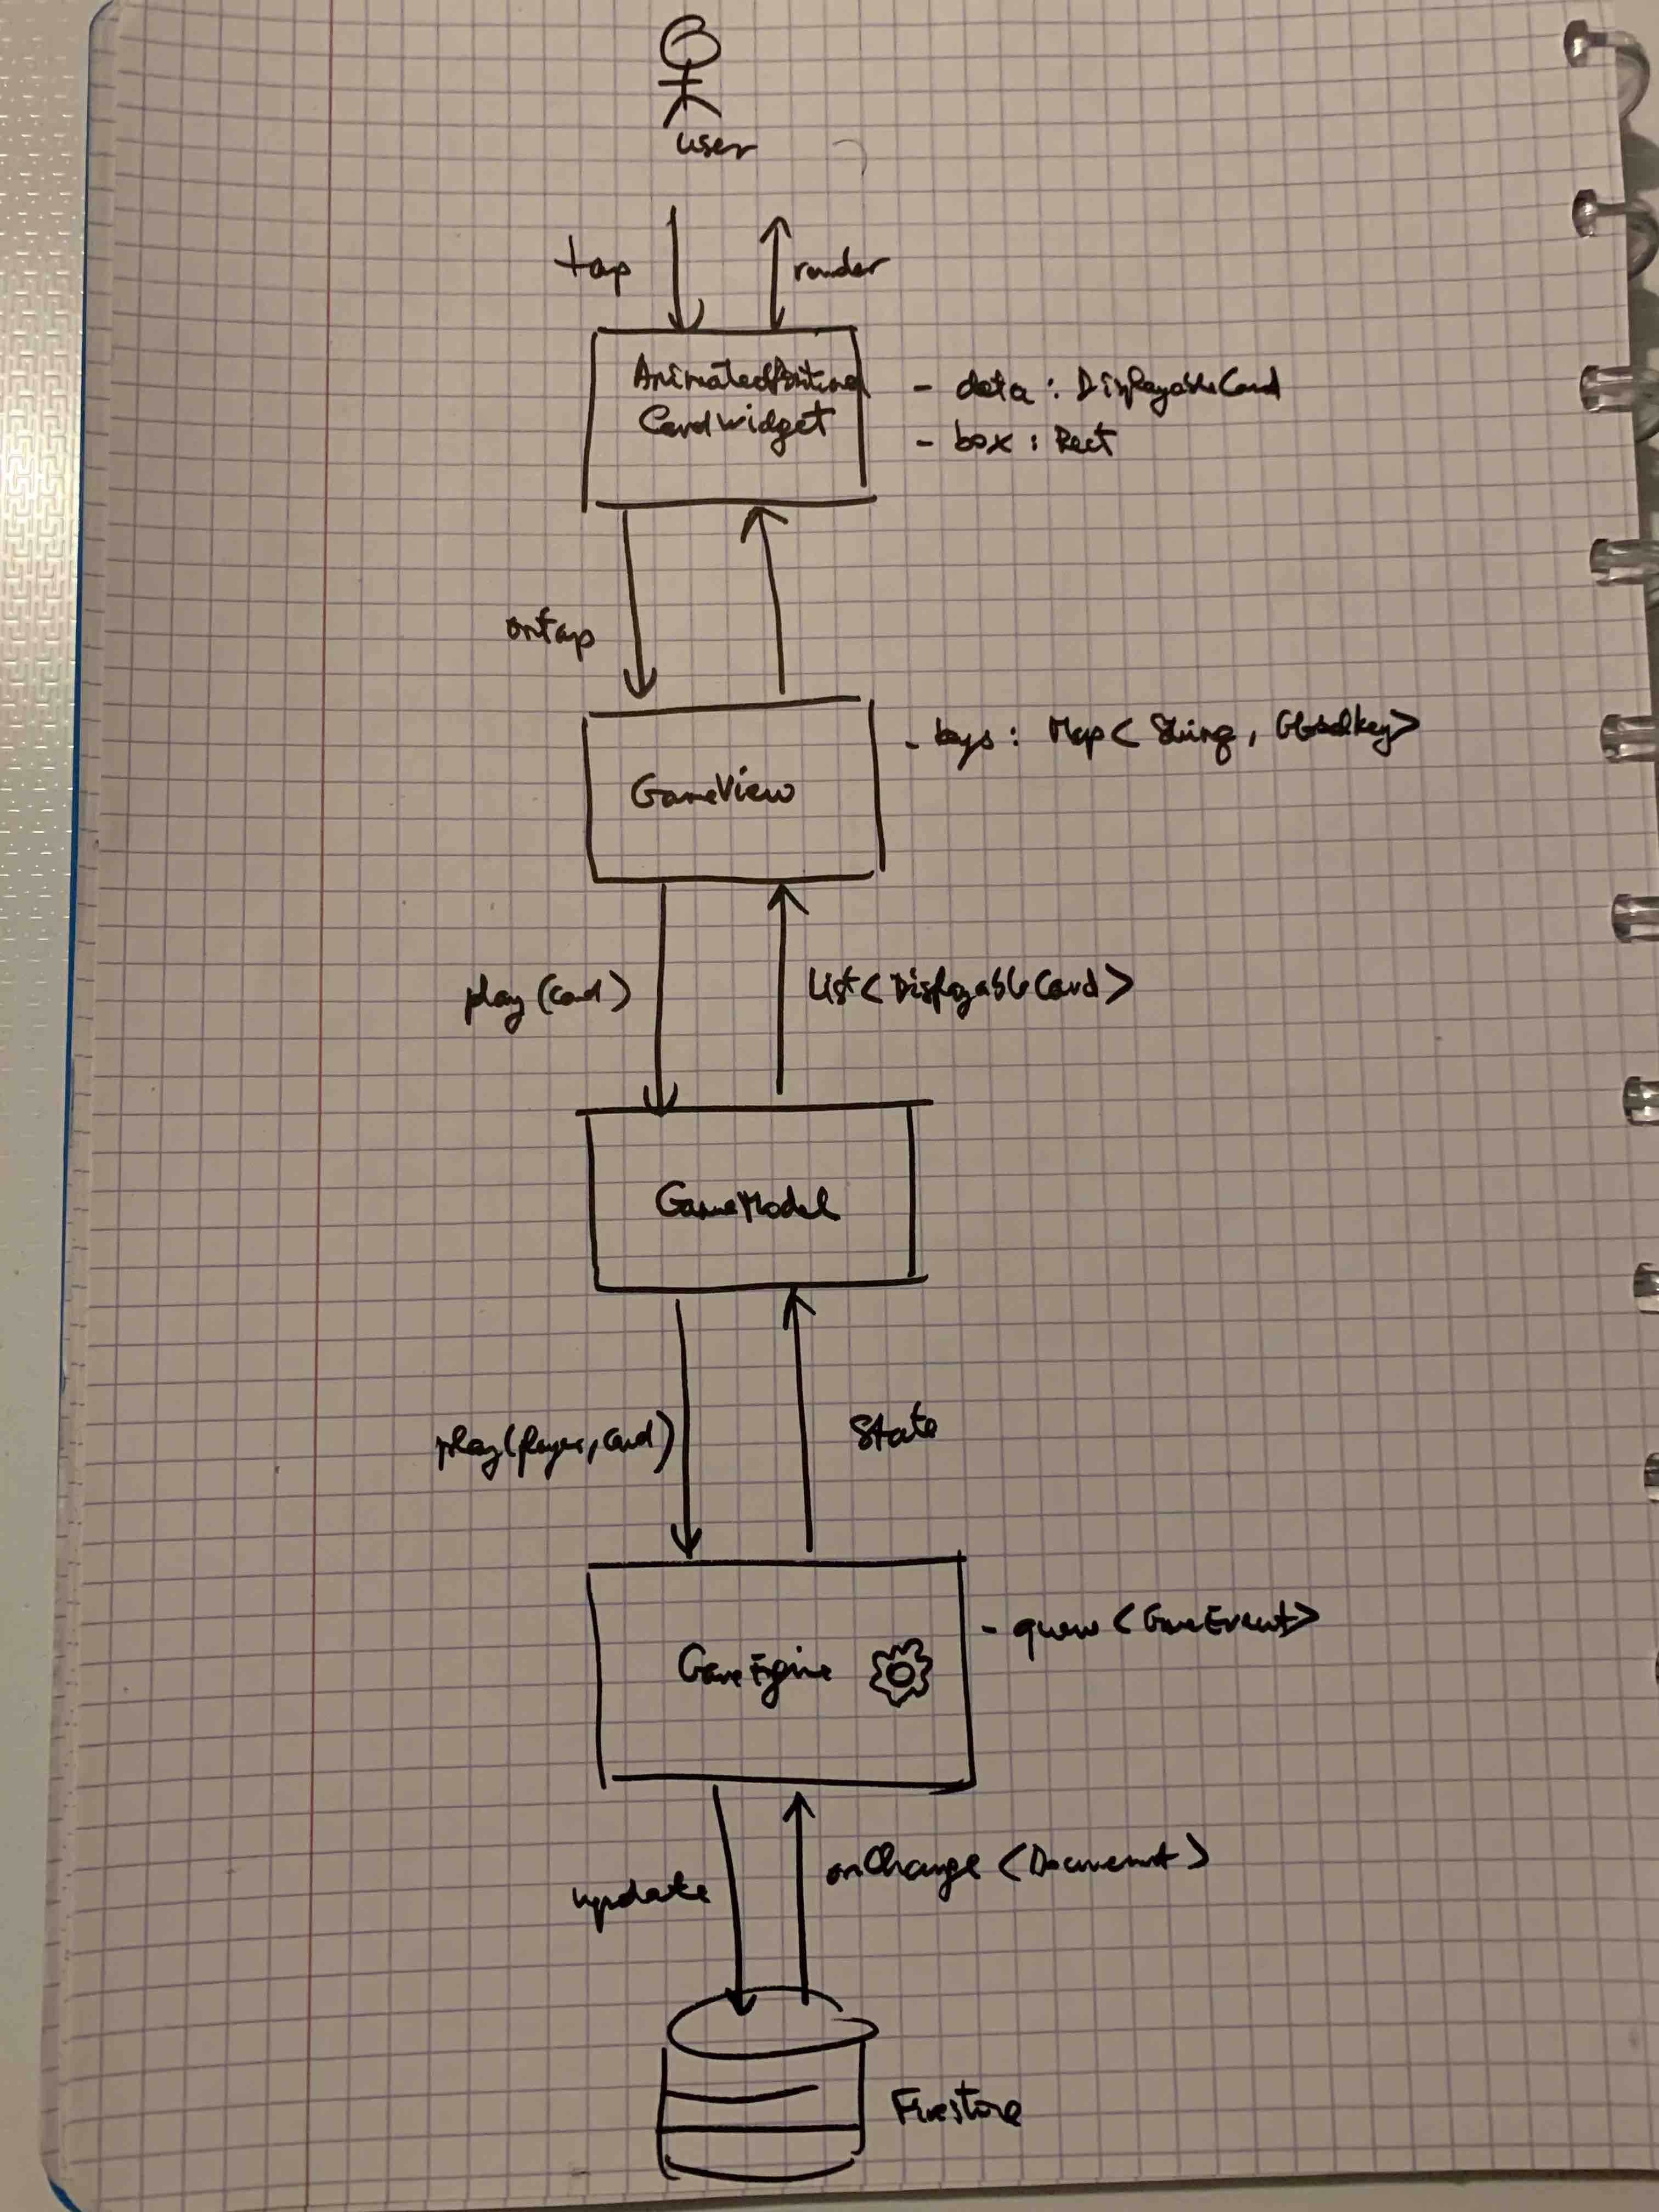 user
tap
render
AnimatedPositioned
CardWidget
- data : DisplayableCard
- box : Rect
ontap
- keys : Map < String , GlobalKey >
GameView
play (card)
List < DisplayableCard >
GameModel
play (player, card)
State
- queue < GameEvent >
GameEngine
update
onChange < Document >
Firestore